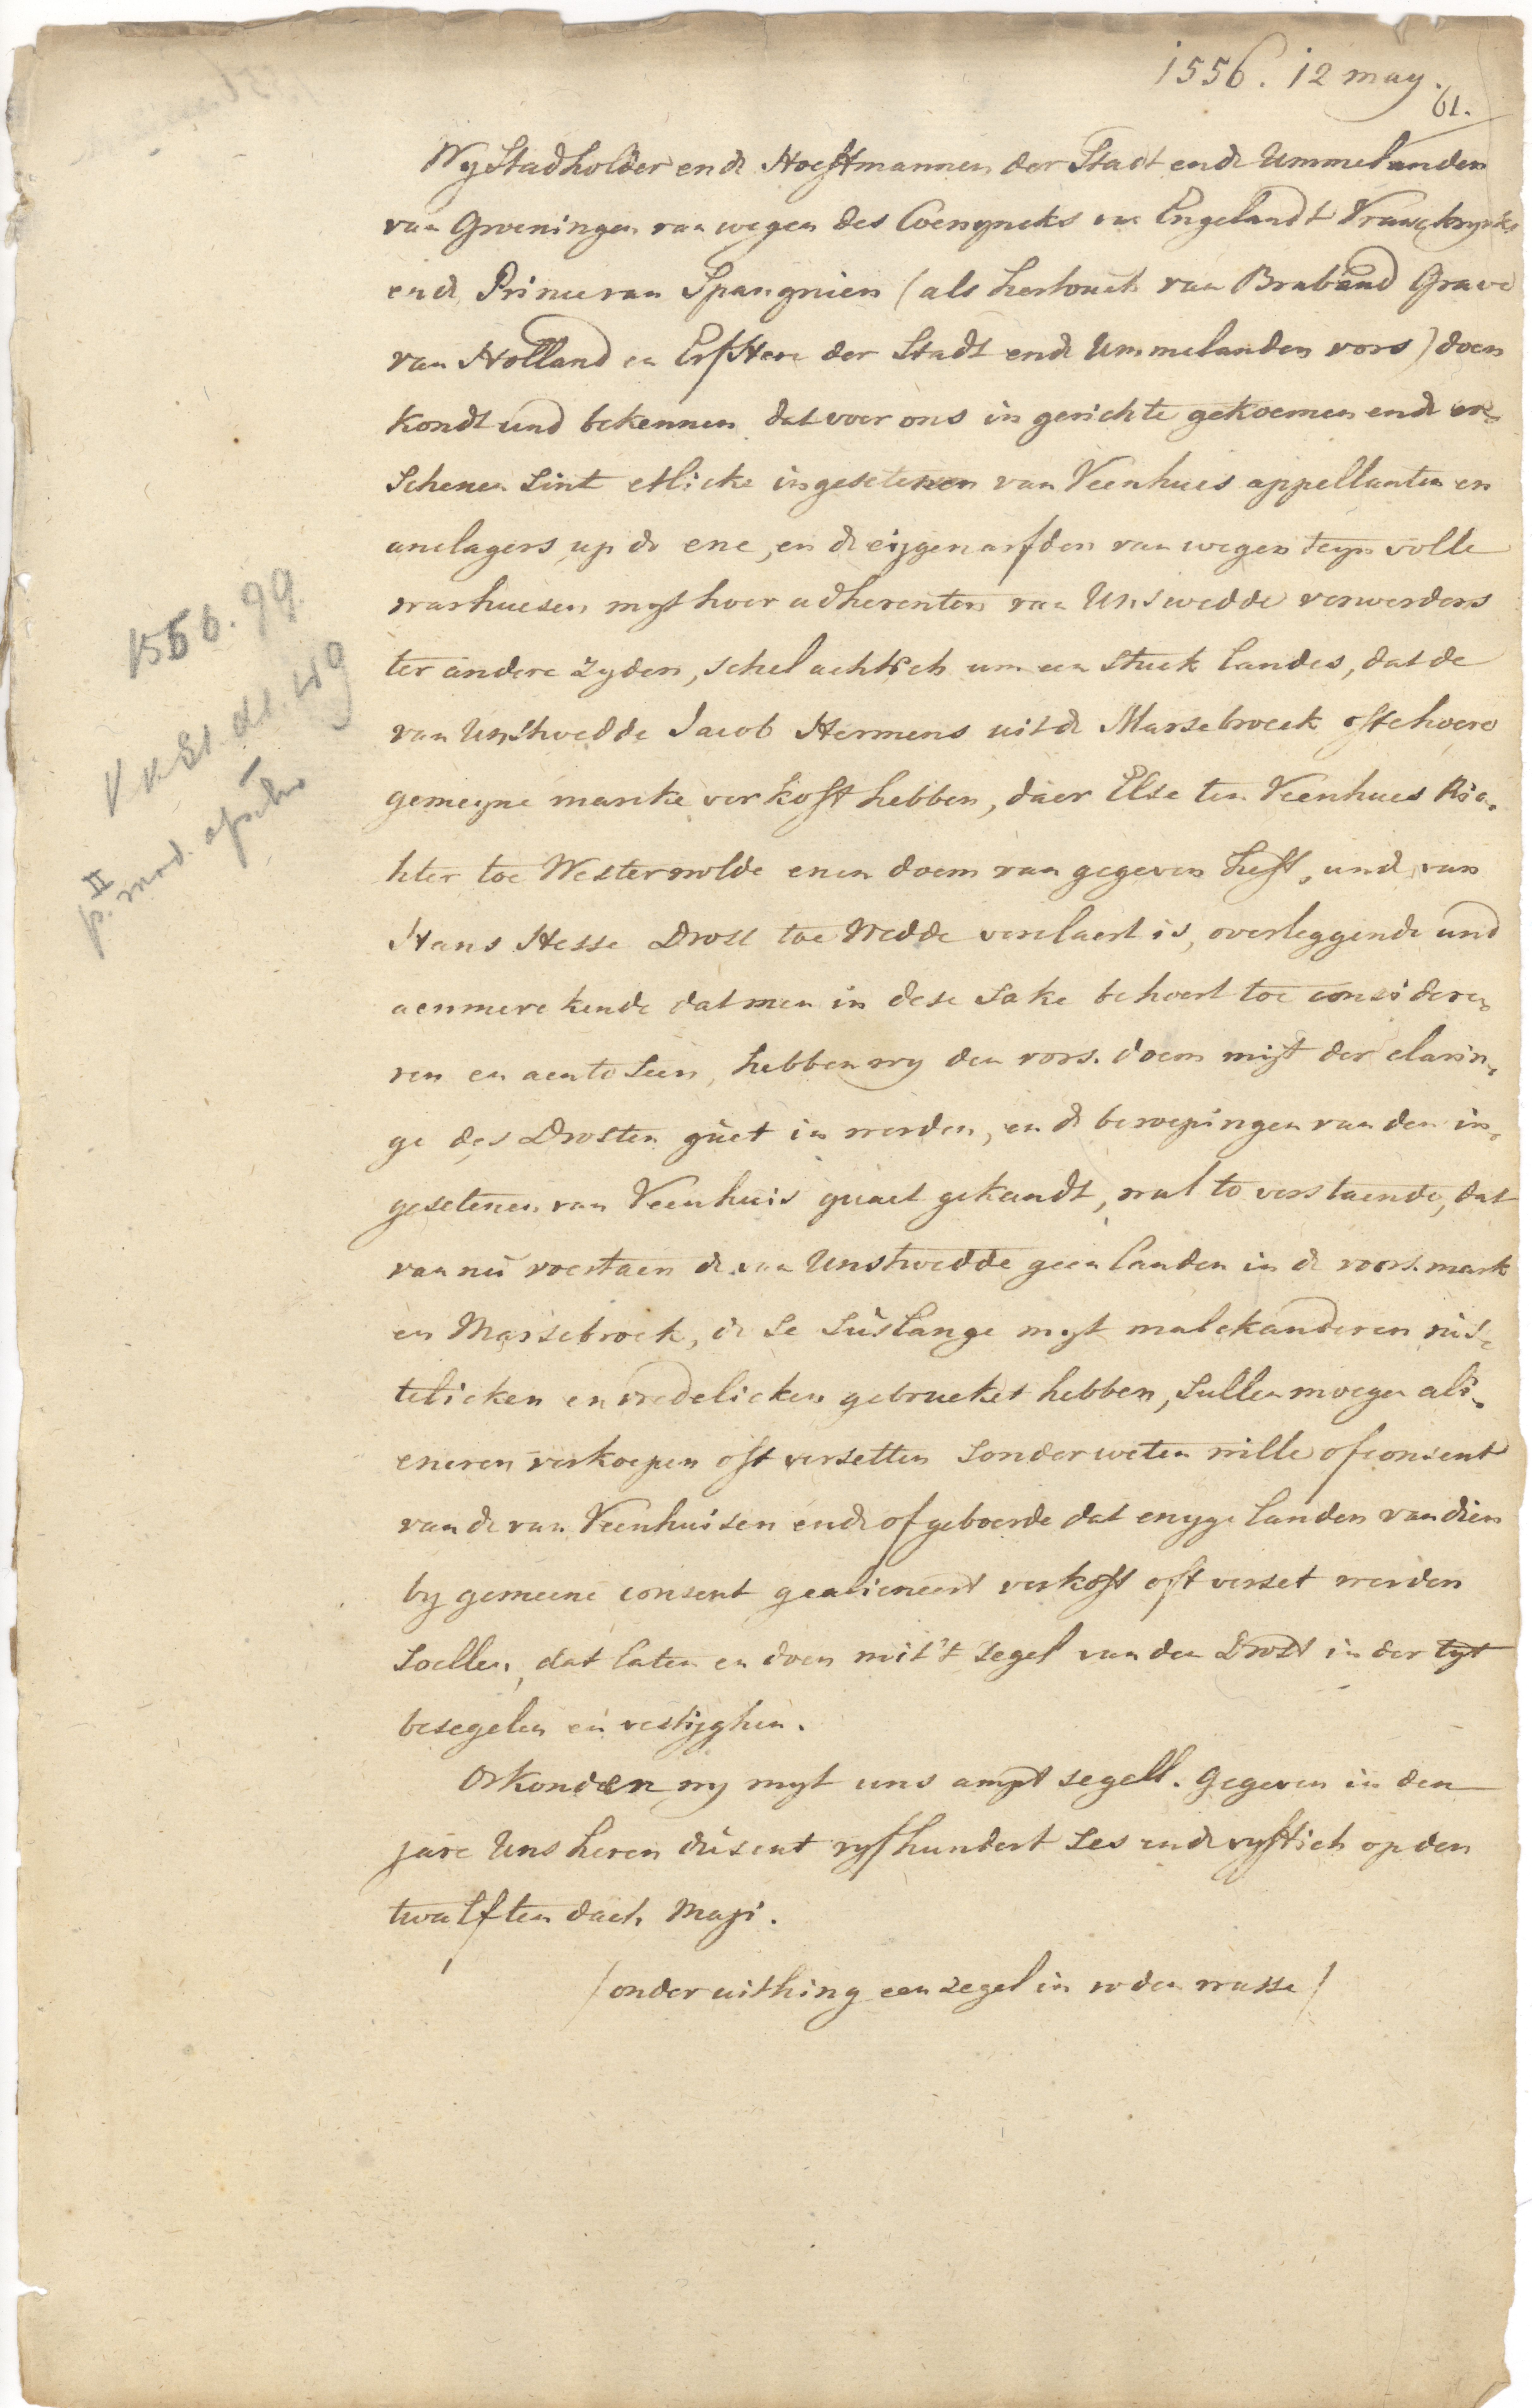 1556. 12 may.
61.
Wy Stadholder ende Hoeftmannen der Stadt ende Ummelanden
van Groeningen van wegen des Coenyncks van Engelandt Vranckrycks
ende Prince van Spangnien (als hertouch van Braband Grave
van Holland en Erf Here der Stadt ende Ummelanden vors) doen
kondt und bekennen dat voer ons in gerichte gekoemen ende er-
schenen sint etlicke ingesetenen van Veenhues appellanten en
anclagers up de ene, ende eijgenarfden van wegen teyn volle
warhuesen myt hoer adherenten van Unswedde verwerders
ter andere zyden, schelachtich um een stuck landes, dat de
van Unstwedde Jacob Hermens uit de Marsebroeck ofte hoere
gemeyne marcke verkoft hebben, daer Else ten Veenhues Ric-
hter toe Westerwolde enen doem van gegeven heft, und van
Hans Hesse Drost toe Wedde verclaert is, overleggende und
aenmerckende datmen in dese sake behoert toe considere-
ren en aen to seen, hebben wy den vors. doem mijt der clarin-
ge des Drosten guet in werden, ende beroepingen van den in-
gesetenen van Veenhuis quaet gekandt, wal to verstaende, dat
van nu voertaen de van Unstwedde geen landen in de voors. mark
en Marsebroek, de se suslange myt malckanderen rus-
telicken en vredelicken gebrucket hebben, sullen moegen ali-
eneren verkoepen oft versetten sonder weten wille of consent
van de van Veenhuisen ende of geboerde dat enyge landen van dien
by gemeene consent gealieneert verkoft oft verset werden
soellen, dat laten en doen mit 't segel van den Drost in der tyt
besegelen en vestijghen.
Orkonden wy myt uns ampt segell. Gegeven in den
jare Uns heren dusent vyfhundert ses ende vyftich op den
twalften dach Maji.
(onder uithing een zegel in roden wasse)
1556. 99.
II